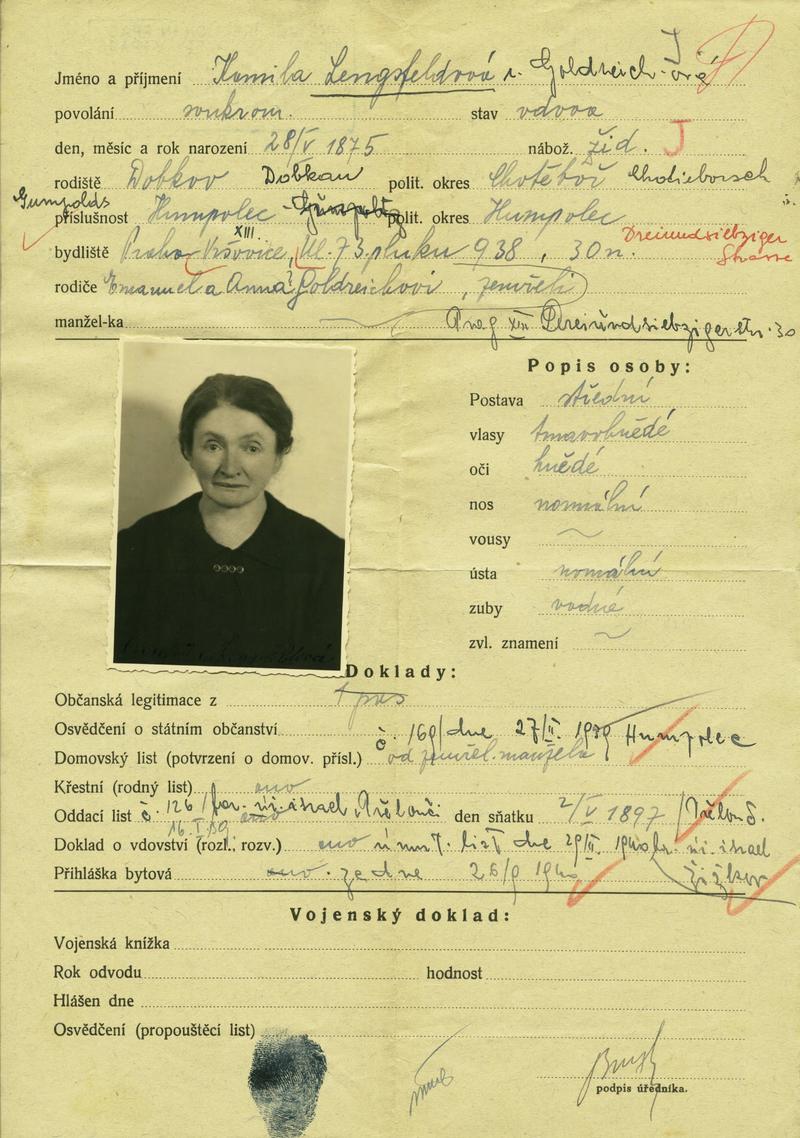 J
Jméno a příjmení Kamila Lengsfeldová r. Goldreich-ová
povolání soukrom. stav vdova
den, měsíc a rok narození 28/V 1875 nábož. žid. J
rodiště Dobkov Dobkau polit. okres Chotěboř Chotieborsch
Gumpolds
příslušnost Humpolec polit. okres Humpolec
XIII.
bydliště Praha Vršovice, Ul. 73. pluku 938, 30 n. Dreiundsiebziger Strasse
rodiče Emanuel a Anna Goldreichovi, zemřelí
manžel-ka Prag XIII Dreiundsiebzigerstr. 30
Popis osoby:
Postava střední
vlasy tmavohnědé
oči hnědé
nos normální
vousy
ústa normální
zuby vadné
zvl. znamení
Doklady:
Občanská legitimace z
Osvědčení o státním občanství č. 169/ dne 27/II. 1939 Humpolec
Domovský list (potvrzení o domov. přísl.) od zemřel. manžela
Křestní (rodný list) ano
Oddací list č. 126/ den sňatku 2/V 1897
Doklad o vdovství (rozl., rozv.) ano úmrt. list dne israel
Přihláška bytová ano. ze dne Žižkov
Vojenský doklad:
Vojenská knížka
Rok odvodu hodnost
Hlášen dne
Osvědčení (propouštěcí list)
podpis úředníka.